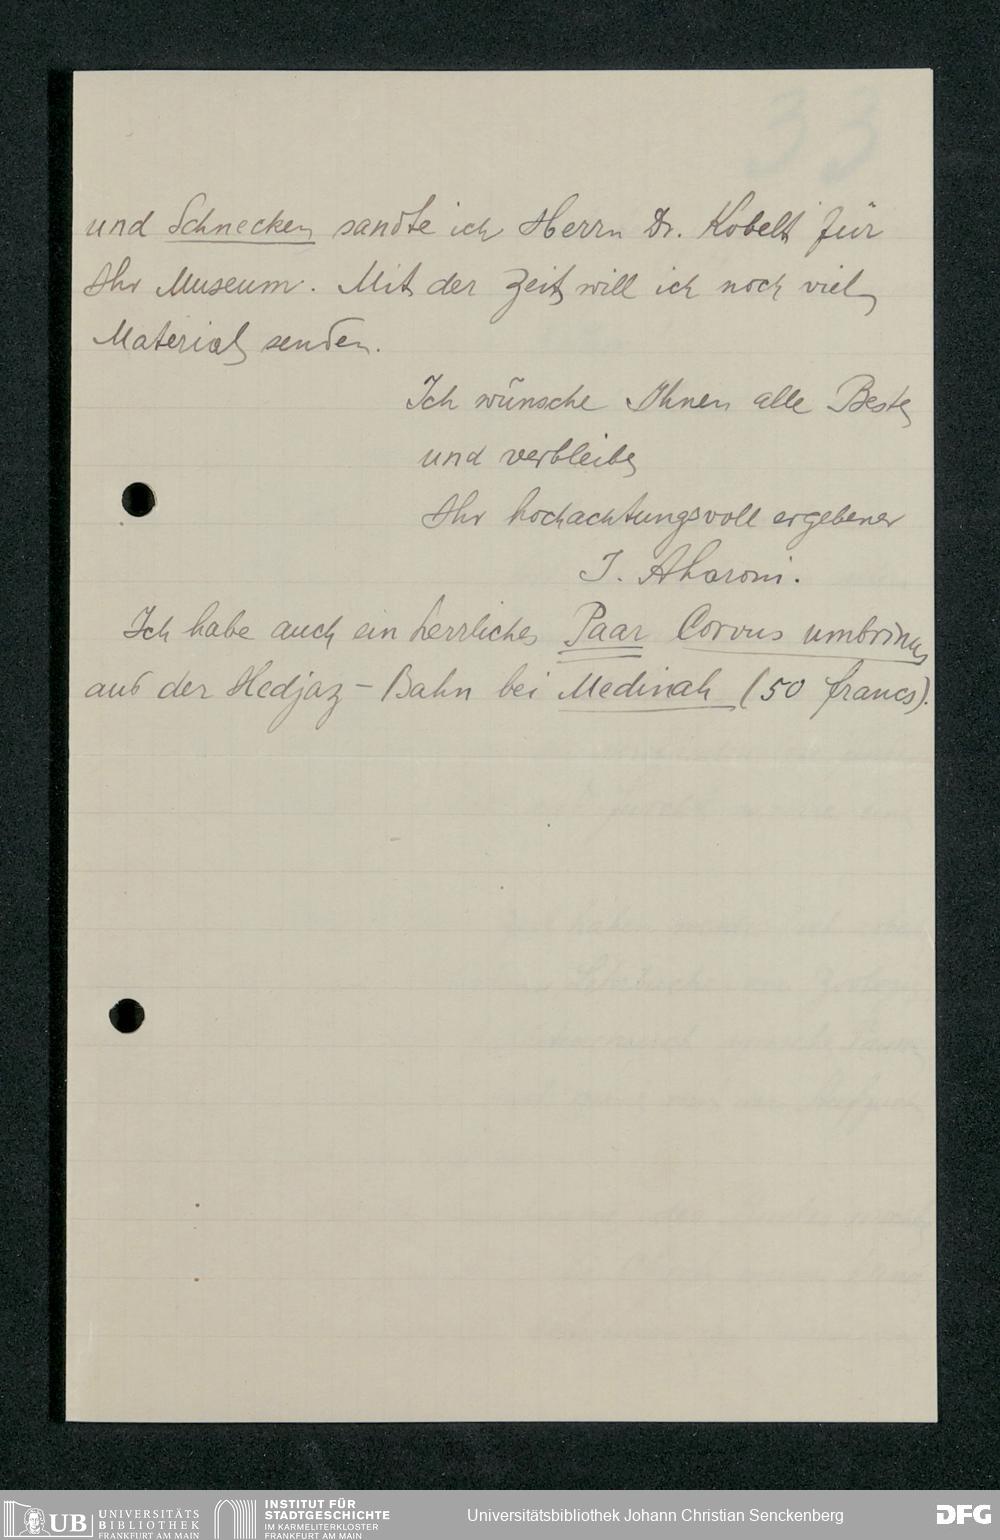 33
und Schnecken sandte ich Herrn Dr. Kobelt für
Ihr Museum. Mit der Zeit will ich noch viel
Material senden.
Ich wünsche Ihnen alle Beste
und verbleibe
Ihr hochachtungsvoll ergebener
J. Aharoni.
Ich habe auch ein herrliches Paar Corvus umbrinus
aus der Hedjaz-Bahn bei Medinah (50 francs).
UB UNIVERSITÄTS
BIBLIOTHEK
FRANKFURT AM MAIN
INSTITUT FÜR
STADTGESCHICHTE
IM KARMELITERKLOSTER
FRANKFURT AM MAIN
Universitätsbibliothek Johann Christian Senckenberg
DFG